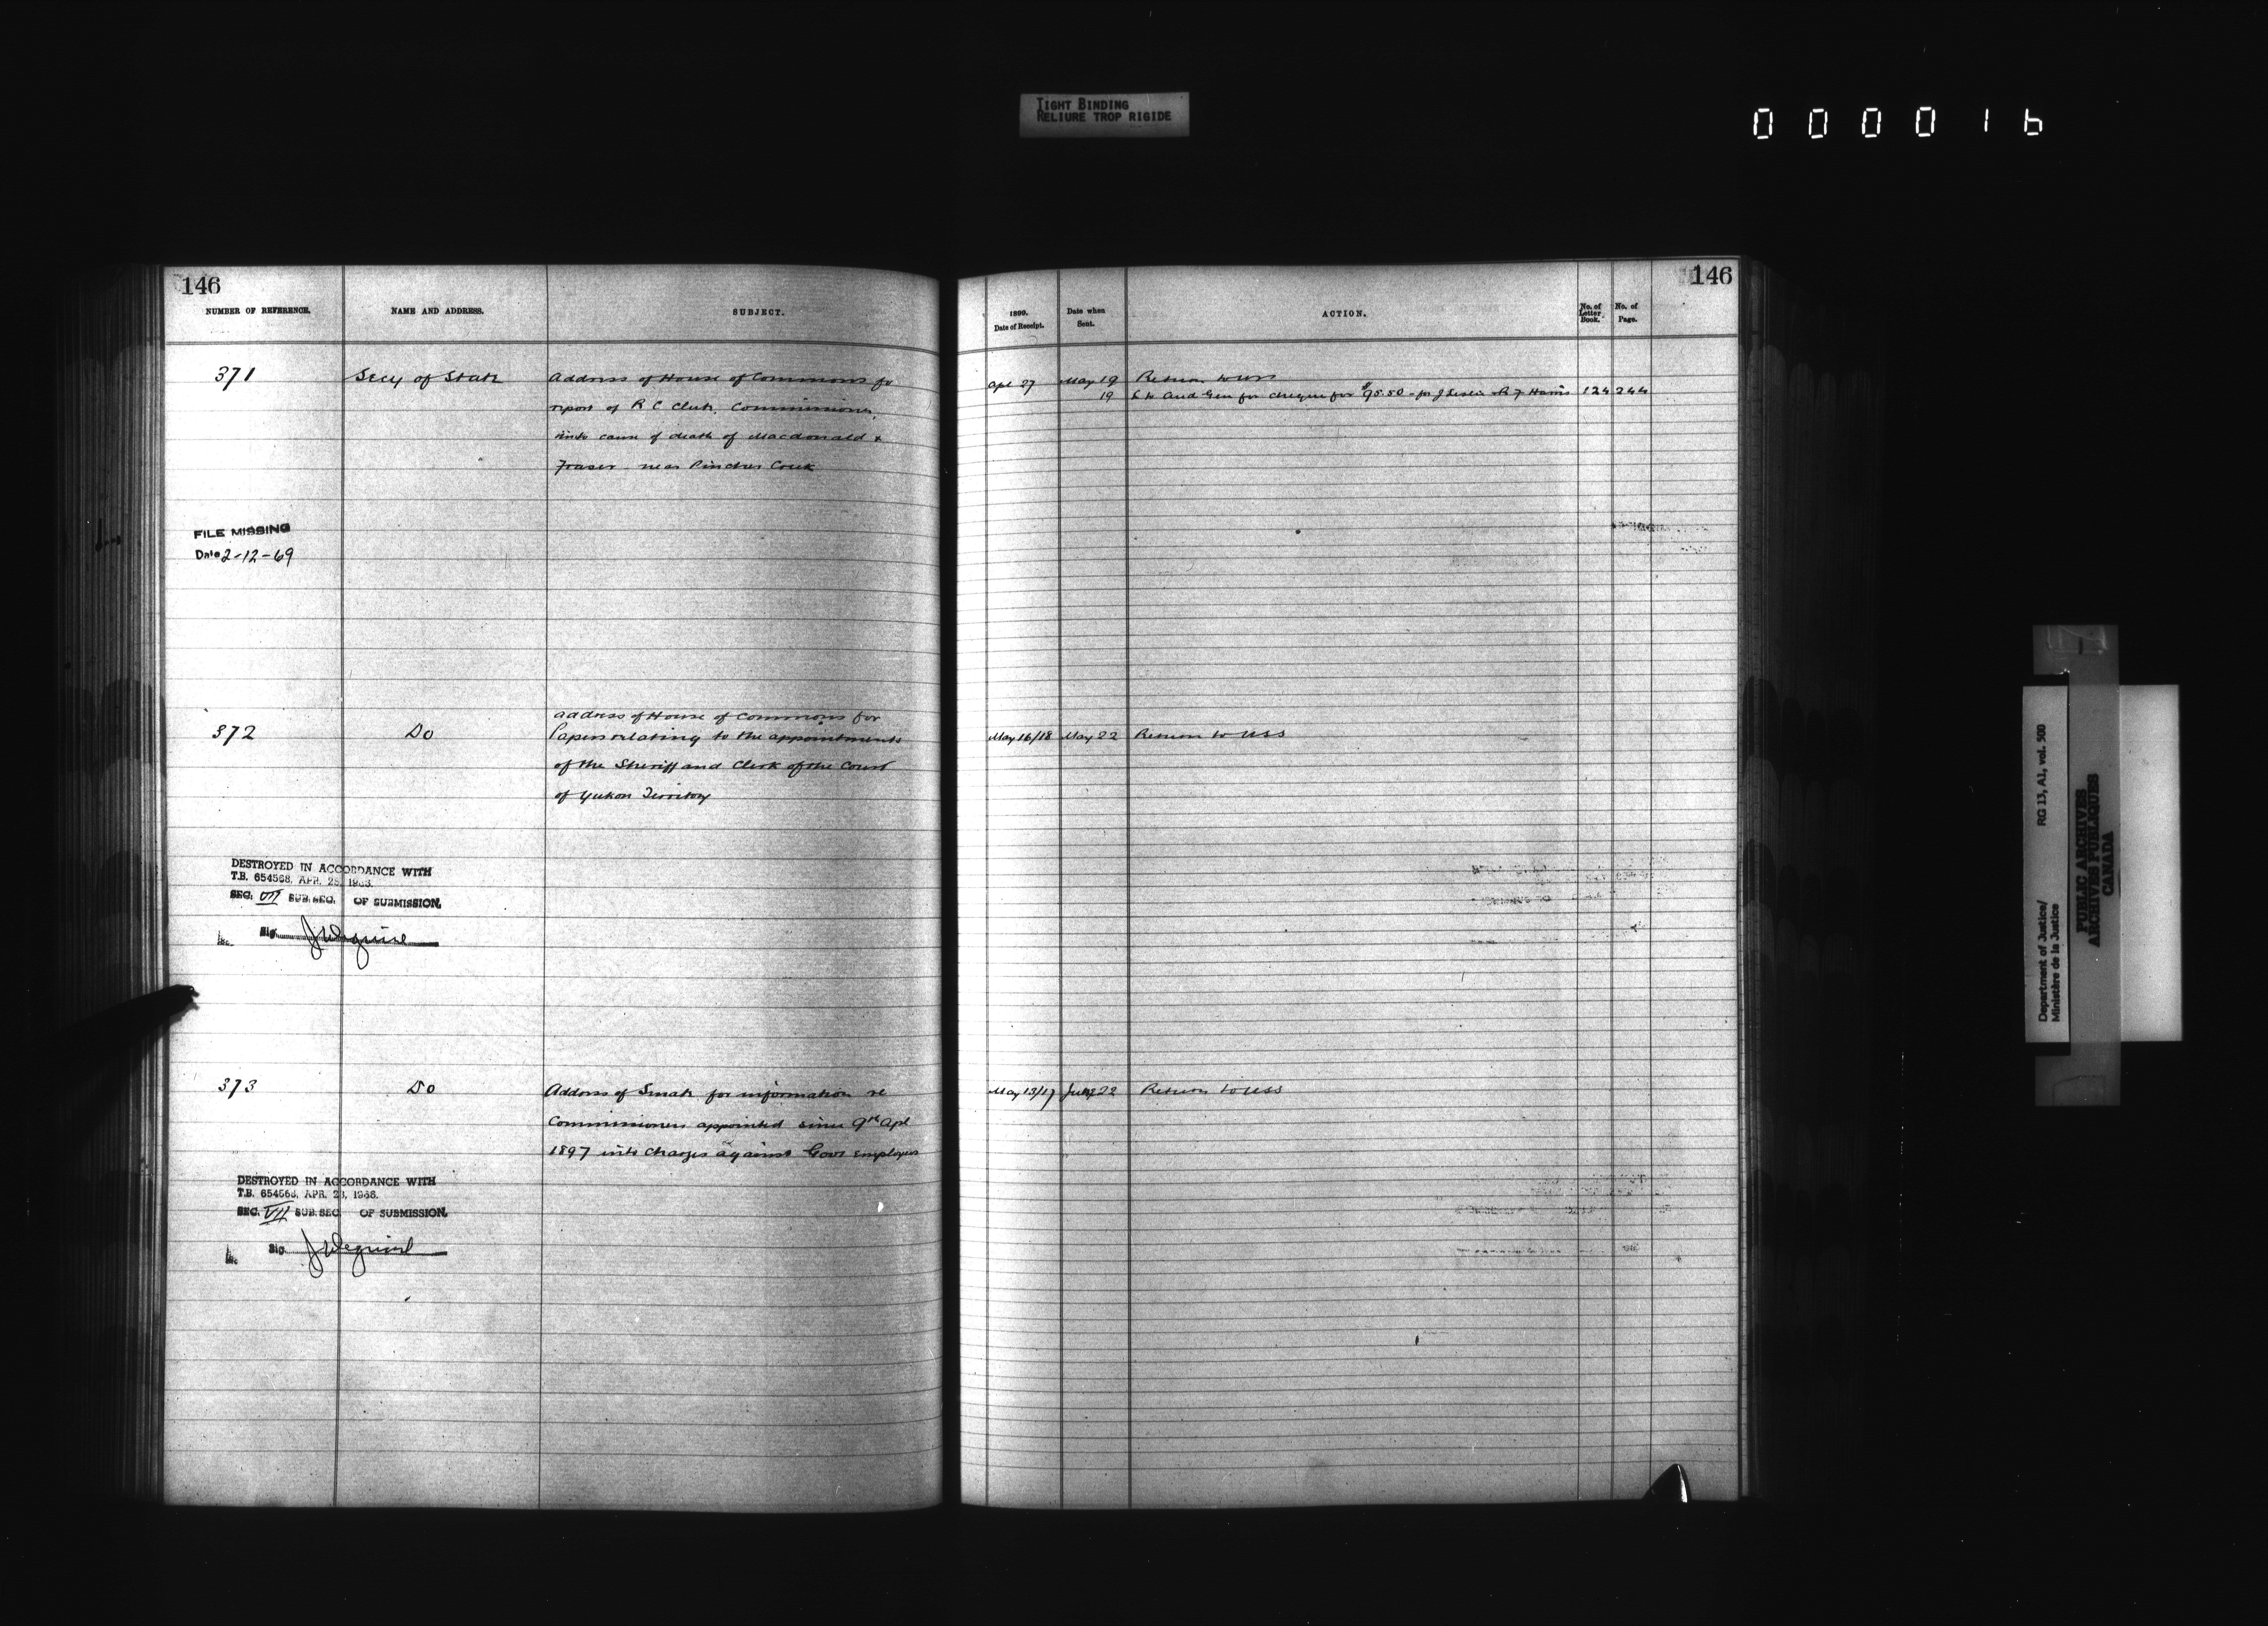 TIGHT BINDING
RELIURE TROP RIGIDE
000016
146
NUMBER OF REFERENCE.
NAME AND ADDRESS.
SUBJECT.
371
Secy of State
Address of House of Commons for
report of R C Clute, Commissioner,
into cause of death of Macdonald &
Fraser near Pincher Creek
FILE MISSING
Date 2-12-69
372
Do
address of House of Commons for
Papers relating to the appointments
of the Sheriff and Clerk of the Court
of Yukon Territory
DESTROYED IN ACCORDANCE WITH
T.B. 654568, APR. 28, 1966.
SEC. VII SUB.SEC. OF SUBMISSION.
Sig.
373
Do
Address of Senate for information re
Commissioners appointed since 9th Apl
1897 into charges against Govt employees
DESTROYED IN ACCORDANCE WITH
T.B. 654568, APR. 28, 1966.
SEC. VII SUB.SEC. OF SUBMISSION.
Sig.
146
1899.
Date of Receipt.
Date when
Sent.
ACTION.
No. of
Letter
Book.
No. of
Page.
Apl 27 May 19 Return to USS
19 L to Aud Gen for cheque for $95.50 - for J Leslie R F Harris 124 244
May 16/18 May 22 Return to USS
May 13/17 22 Return to USS
Department of Justice/ RG 13, A1, vol. 500
Ministère de la Justice
PUBLIC ARCHIVES
ARCHIVES PUBLIQUES
CANADA